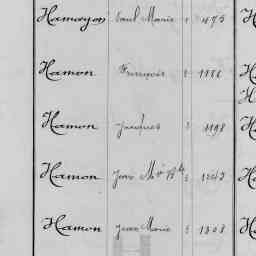 Hamayon Paul Marie 475
Hamon François 1186
Hamon Jacques 1198
Hamon Jean Mie Bte
Hamon Jean Marie 1308